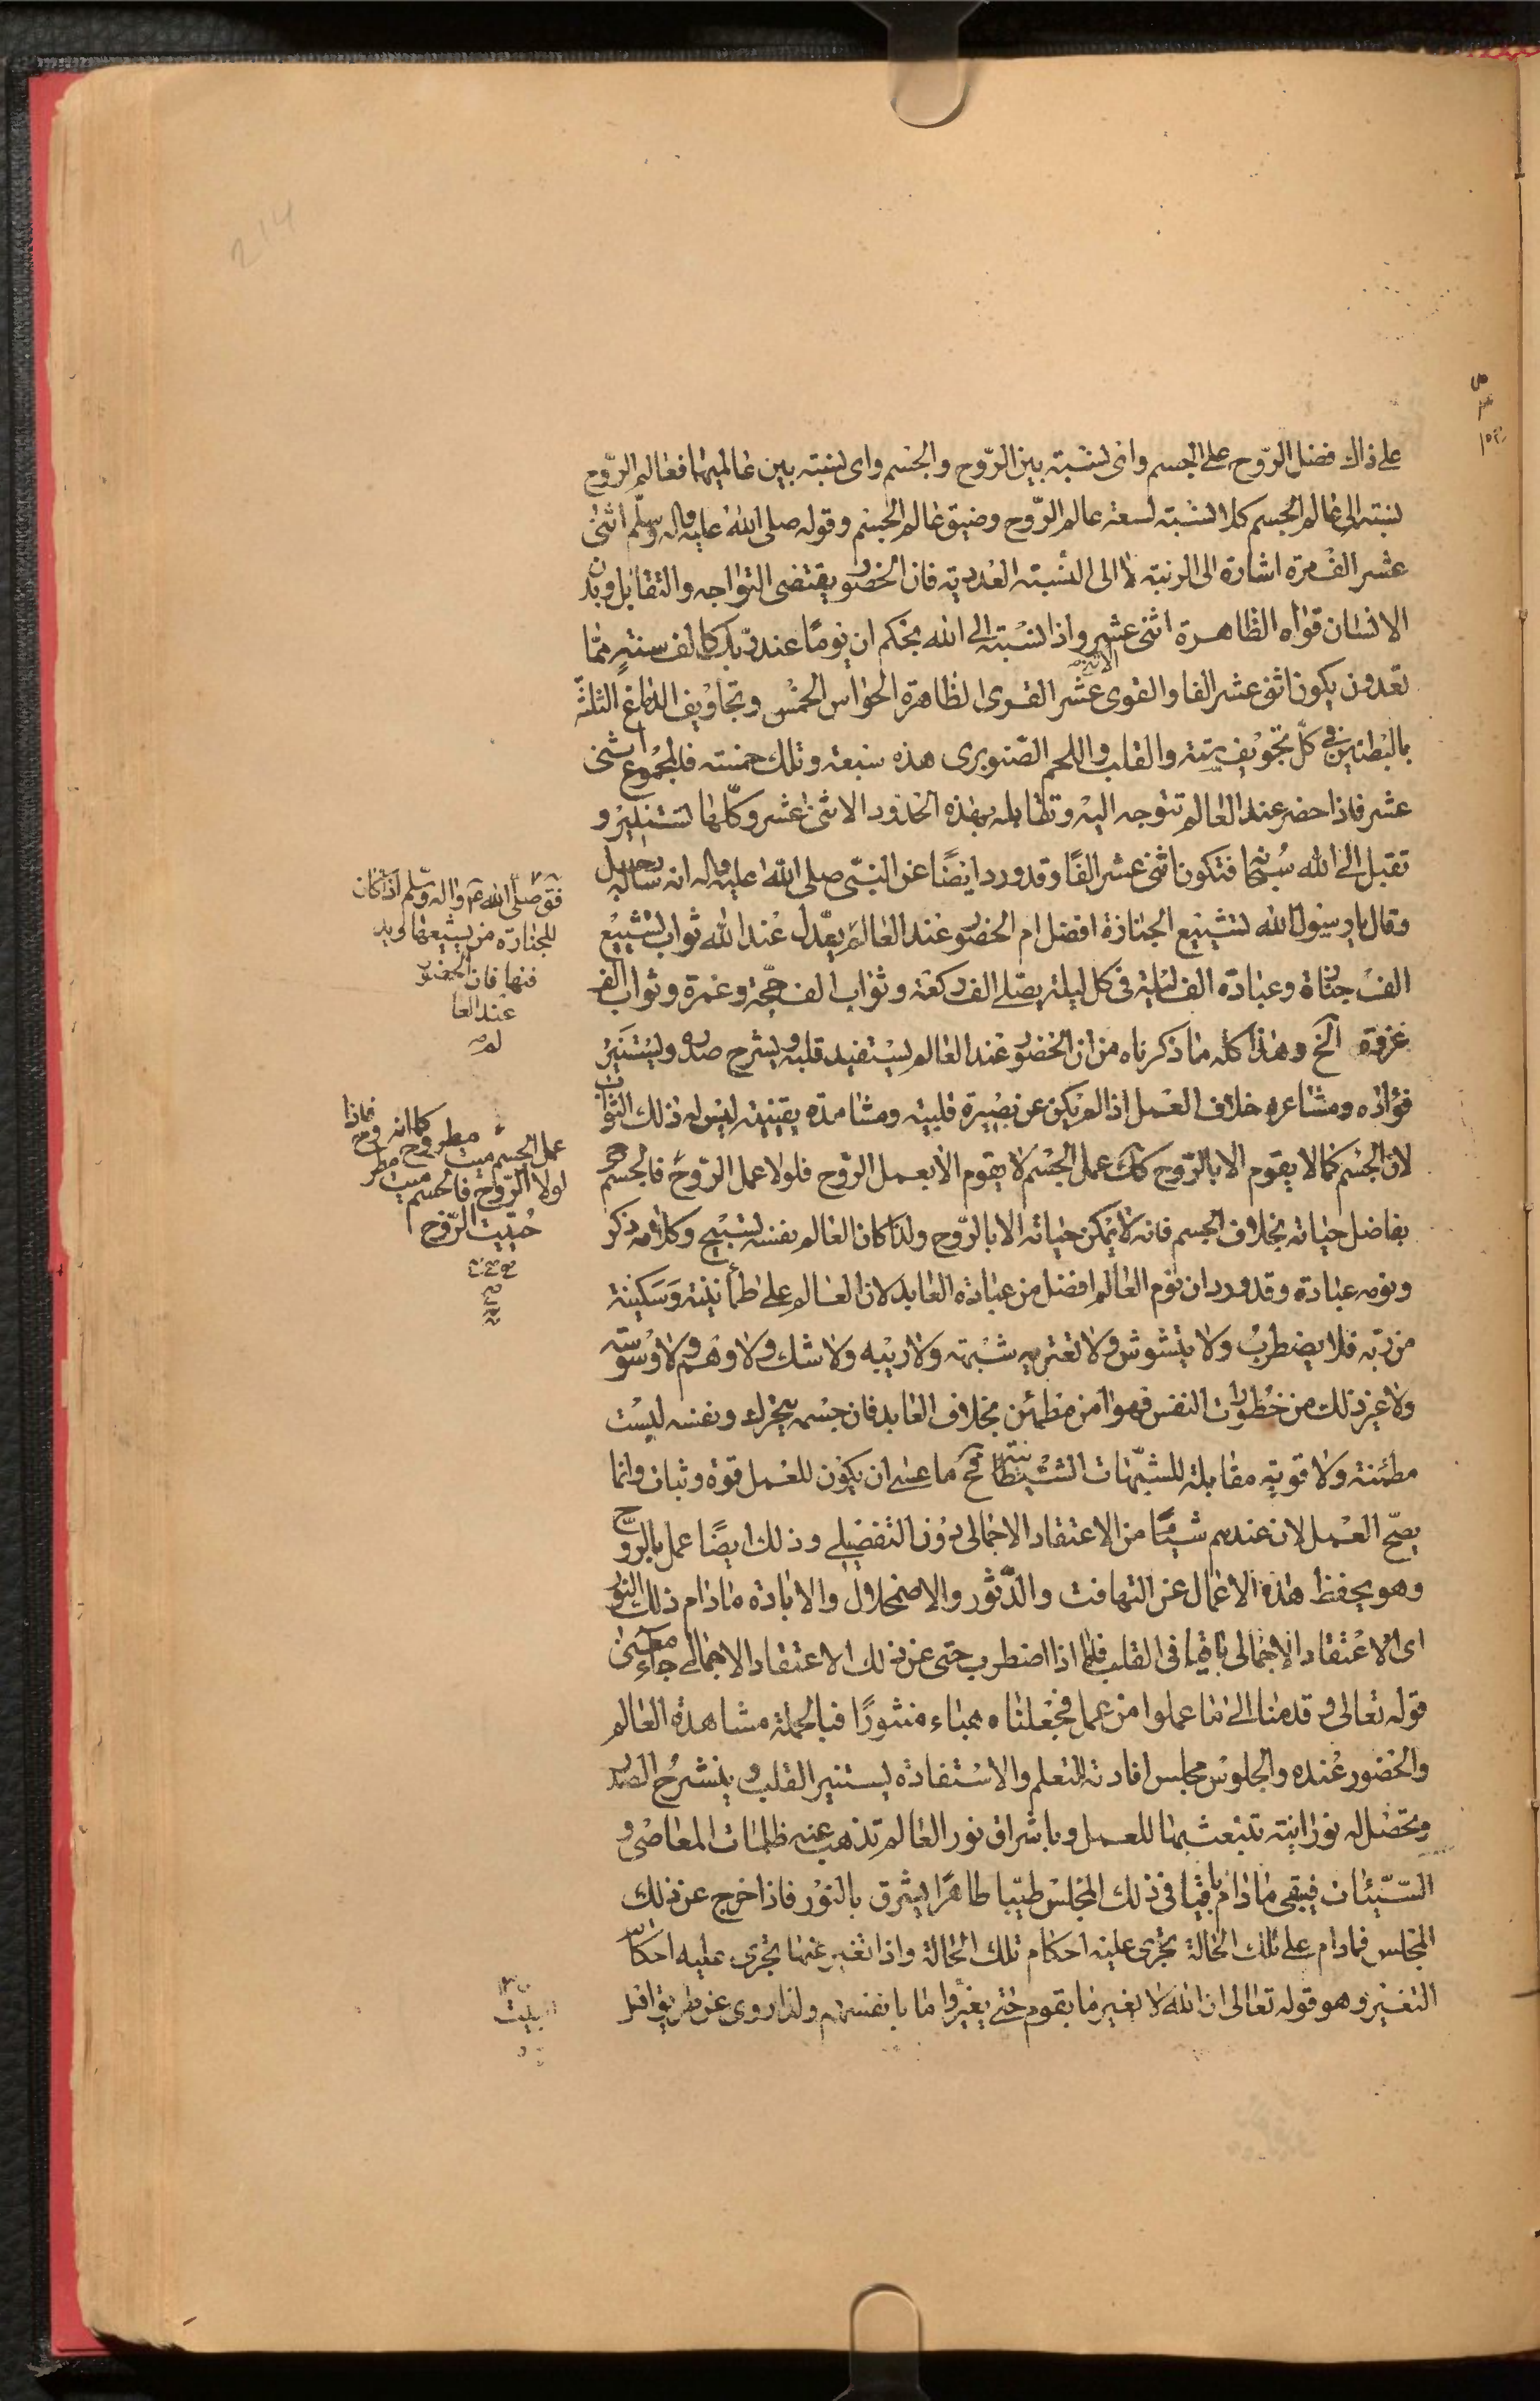 على ذاك فضل الروح على الجسم واى نسبة بين الروح والجسم واى نسبة بين عالميهما فعالم الروح
نسبته الى عالم الجسم كلا نسبة لسعة عالم الروح وضيق عالم الجسم وقوله صلى الله عليه واله وسلم اثنى
عشر الف مرة اشارة الى الرتبة لا الى النسبة العددية فان الحضور يقتضى التواجه والتقابل وبدن
الانسان قواه الظاهرة اثنى عشر واذا نسبته الى الله بحكم ان يوما عند ربك كالف سنة مما
تعدون يكون اثنى عشر الفا والقوى الاثنى عشر القوى الظاهرة الحواس الخمس وتجاويف الدماغ الثلثة
بالبطنين فى كل تجويف ستة والقلب واللحم الصنوبرى هذه سبعة وتلك خمسة فالمجموع اثنى
عشر فاذا حضر عند العالم تتوجه اليه وتقابله بهذه الحدود الاثنى عشر وكلها تستنير و
تقبل الى الله سبحانه فتكون اثنى عشر الفا وقد ورد ايضا عن النبى صلى الله عليه واله انه ساله رجل
وقال يا رسول الله تشييع الجنازة افضل ام الحضور عند العالم يعدل عند الله ثواب تشييع
الف جنازة وعبادة الف ليلة فى كل ليلة يصلى الف ركعة وثواب الف حجة وعمرة وثواب الف
غزوة الخ وهذا كله ما ذكرناه من ان الحضور عند العالم يستفيد قلبه ويشرح صدره ويستنير
فؤاده ومشاعره خلاف العمل اذا لم يكن عن بصيرة قلبية ومشاهدة يقينية ليس له ذلك الثواب
لان الجسم كما لا يقوم الا بالروح كك عمل الجسم لا يقوم الا بعمل الروح فلولا عمل الروح فالجسم
بفاضل حياته بخلاف الجسم فانه لا يمكن حياته الا بالروح ولذا كان العالم نفسه تسبيح وكلامه ذكر
ونومه عبادة وقد ورد ان نوم العالم افضل من عبادة العابد لان العالم على طمأنينة وسكينة
من ربه فلا يضطرب ولا يتشوش ولا تعتريه شبهة ولا ريبه ولا شك ولا وهم ولا وسوسة
ولا غير ذلك من خطورات النفس فهو امن مطمئن بخلاف العابد فان جسمه يتحرك ونفسه ليست
مطمئنة ولا قوية مقابلة للشبهات الشيطانية فح ما عسى ان يكون للعمل قوة وثبات وانما
يصح العمل لان عندهم شيئا من الاعتقاد الاجمالى دون التفضيلى وذلك ايضا عمل بالروح
وهو يحفظ هذه الاعمال عن التهافت والدثور والاضمحلال والابادة مادام ذلك النور
اى الاعتقاد الاجمالى باقيا فى القلب فلما اذا اضطرب حتى عن ذلك الاعتقاد الاجمالى جاء معنى
قوله تعالى وقدمنا الى ما عملوا من عمل فجعلناه هباء منثورا فبالجملة مشاهدة العالم
والحضور عنده والجلوس مجلس افادته للتعلم والاستفادة يستنير القلب وينشرح الصدر
ويحصل له نورانية تنبعث بها للعمل وباشراق نور العالم تذهب عنه ظلمات المعاصى و
السيئات فيبقى مادام باقيا فى ذلك المجلس طيبا طاهرا يشرق بالنور فاذا خرج عن ذلك
المجلس فمادام على تلك الحالة تجرى عليه احكام تلك الحالة واذا تغير عنها تجرى عليه احكام
التغير وهو قوله تعالى ان الله لا يغير ما بقوم حتى يغيروا ما بانفسهم ولذا روى عن طريق اهل
فق صلى الله عم واله وسلم اذا كان
للجنازة من يشيعها ويد
فنها فان الحضور
عند العا
لم
عمل الجسم ميت مطروح كما انه
لولا الروح فالجسم ميت
حييت الروح
البيت